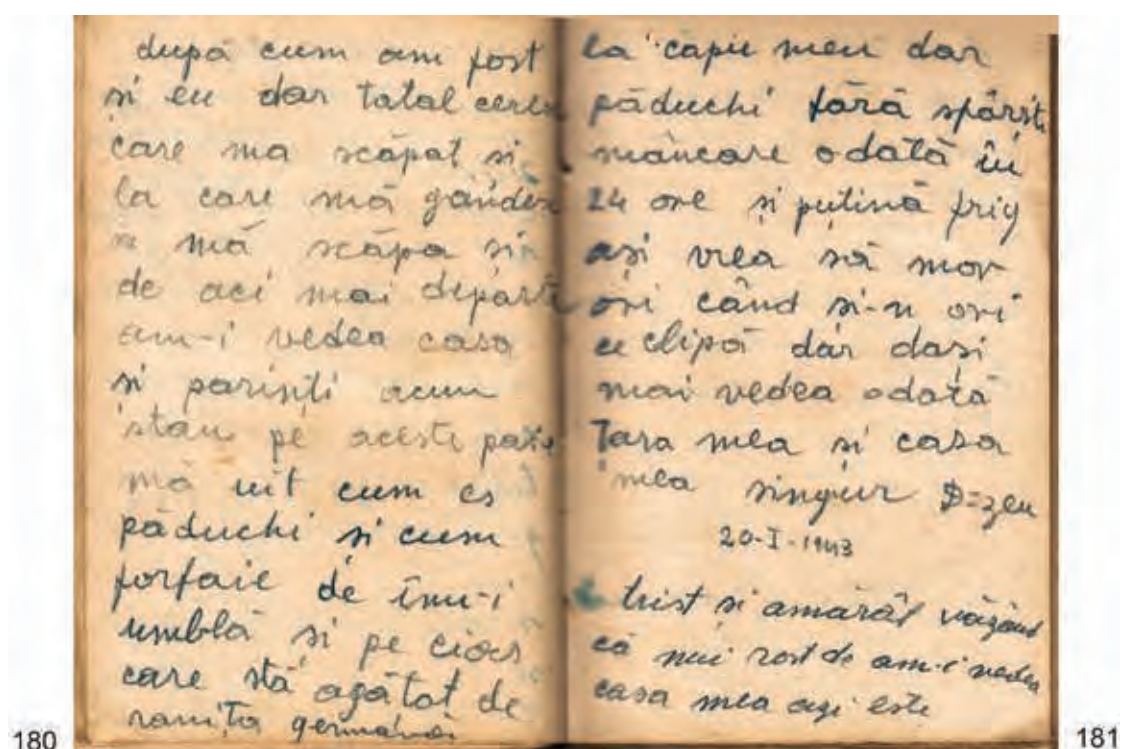 după cum am fost
și eu dar Tatal ceresc
care ma scăpat și
la care mă gândesc
mă scăpa și
de aci mai departe
am-i vedea casa
și parinți acum
stau pe aceste
mă uit cum es
păduchi și cum
forfaie de îmi-i
umblă și pe
care stă agătat de
ranița germană
180
la capu meu dar
păduchi fără spârșit
mâncare odată în
24 ore și puțină frig
ași vrea să mor
ori când si-n ori
ce clipă dar dași
mai vedea odată
Țara mea și casa
mea singur
20-I-1943
trist și amărât văzând
că nui rost de am-i vedea
casa mea azi este
181